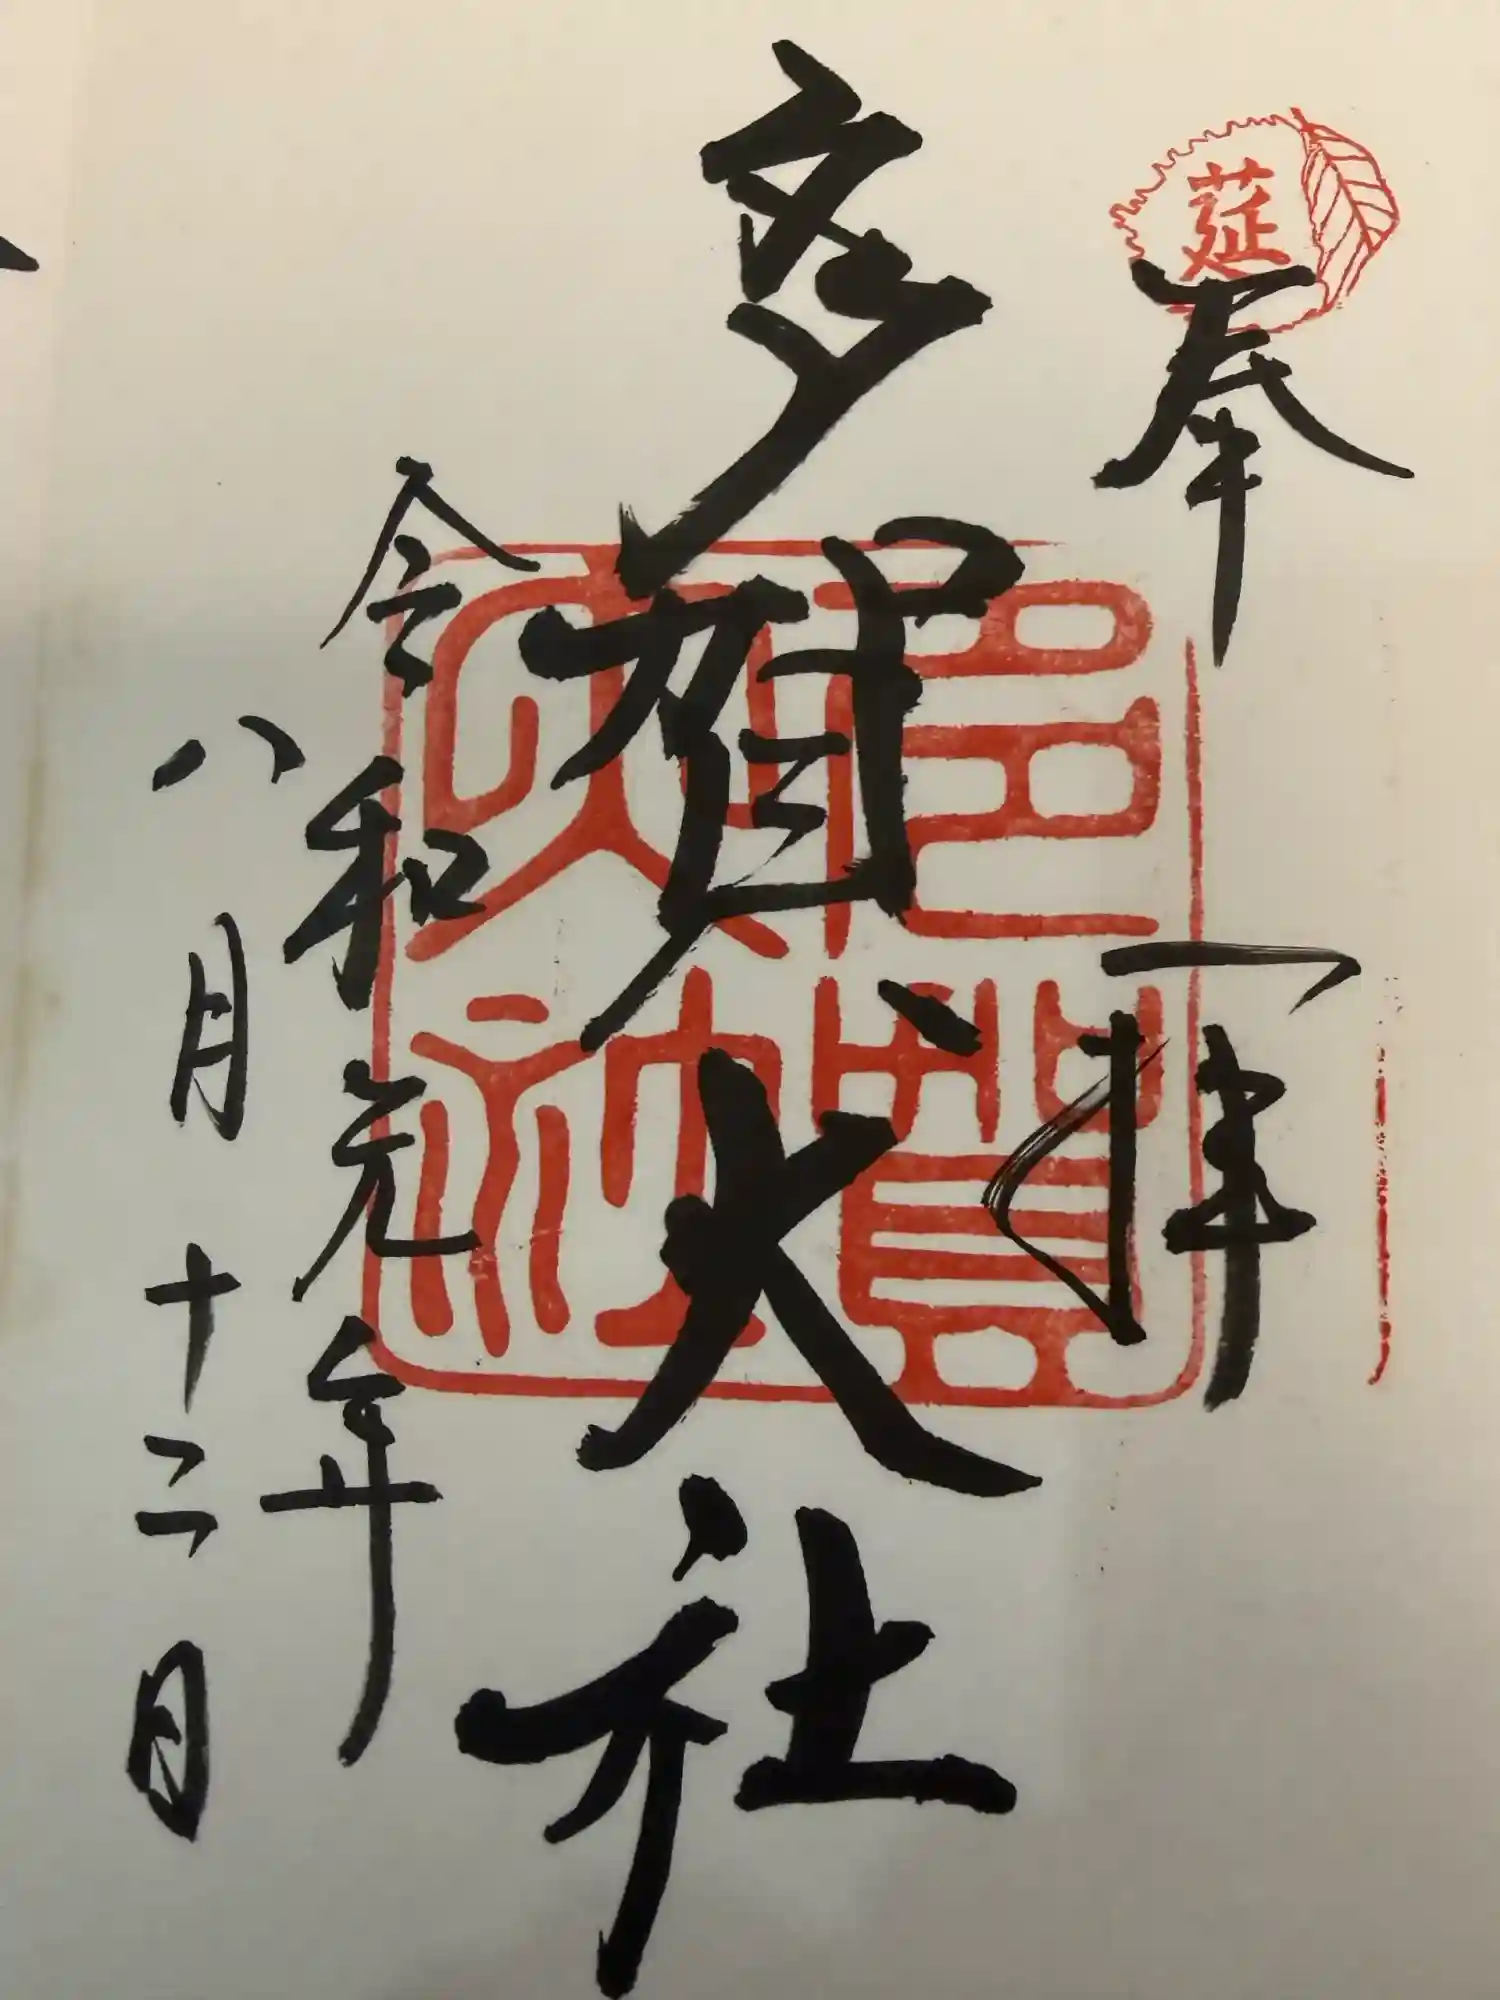 莚
奉拝
多賀大社
多賀大社
令和元年
八月十二日